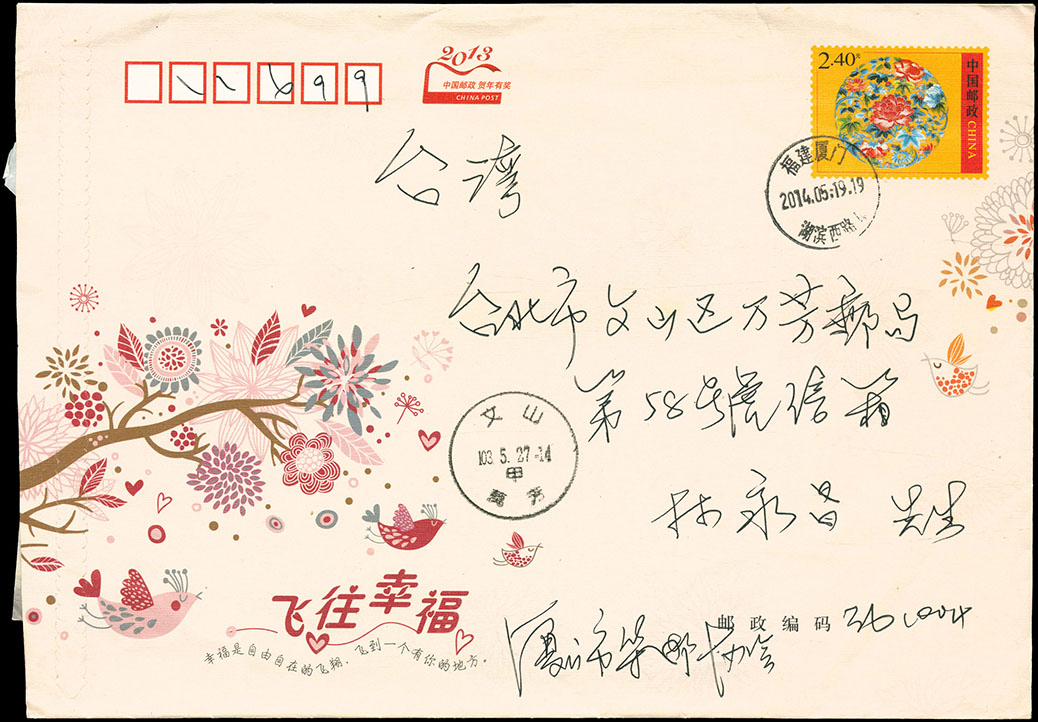 11699
2013
中国邮政 贺年有奖
CHINA POST
2.40元
中国邮政 CHINA
福建厦门
2014.05.19.19
湖滨西路
台湾
台北市文山区万芳邮局
第58号信箱
林永昌 先生
文山
103.5.27-14
甲
萬芳
飞往幸福
幸福是自由自在的飞翔，飞到一个有你的地方。
邮政编码 361004
厦门市集邮协会